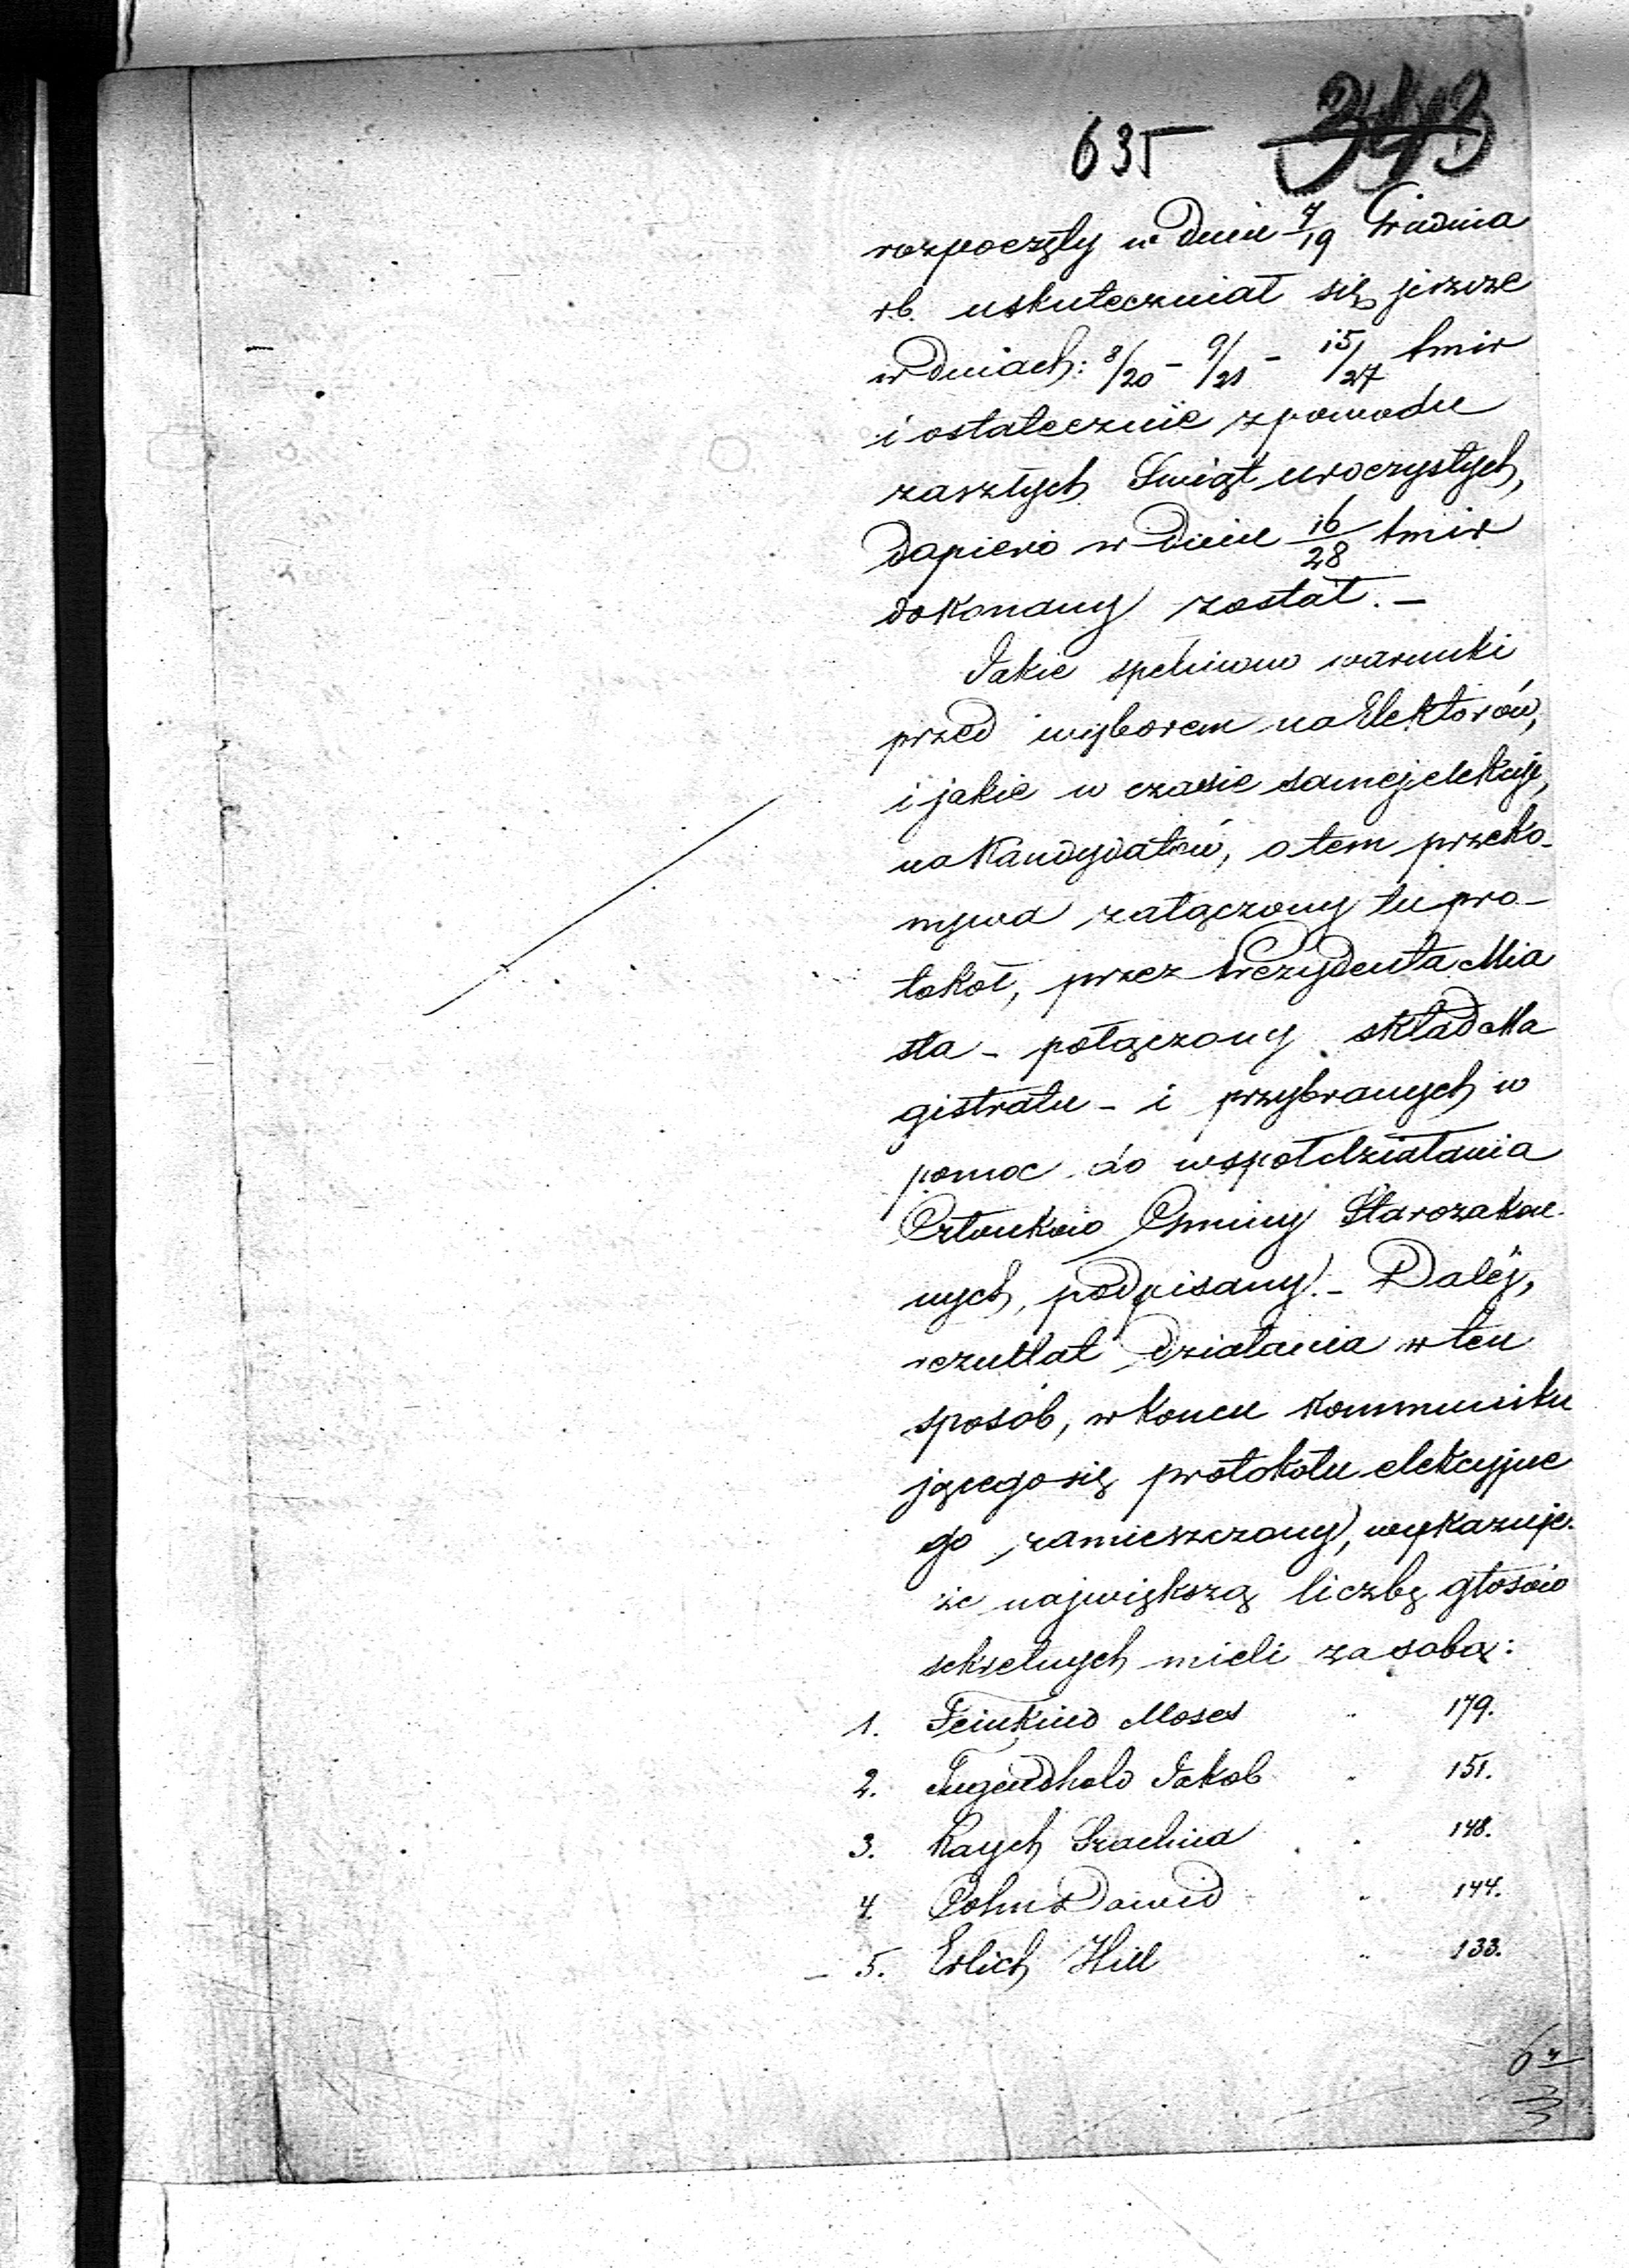 635 343
rozpoczęty w dniu 7/19 Grudnia
r.b. uskuteczniał się jeszcze
w dniach: 8/20 - 9/21 - 15/27 tmir
i ostatecznie z powodu
zaszłych Świąt uroczystych,
dopiero w dniu 16/28 tmir
dokonany został. —
Jakie spełniono warunki
przed wyborem na Elektorów,
i jakie w czasie samej elekcyi,
na Kandydatów, o tem przeko-
nywa załączony tu pro-
tokół, przez Prezydenta Mia
sta - połączony skład Ma
gistratu - i przybranych w
pomoc do współdziałania
Członków Gminy Starozakon-
nych, podpisany. - Daléj,
rezultat działania w ten
sposób, w końcu kommuniku
jącego się protokółu elekcyjne
go zamieszczony, wykazuje
że największą liczbę głosów
sekretnych mieli za sobą:
1. Feinkind Moses " 179.
2. Tugendhold Jakob " 151.
3. Raych Szachna " 148.
4. Cohn Dawid " 144.
5. Erlich Hill " 133.